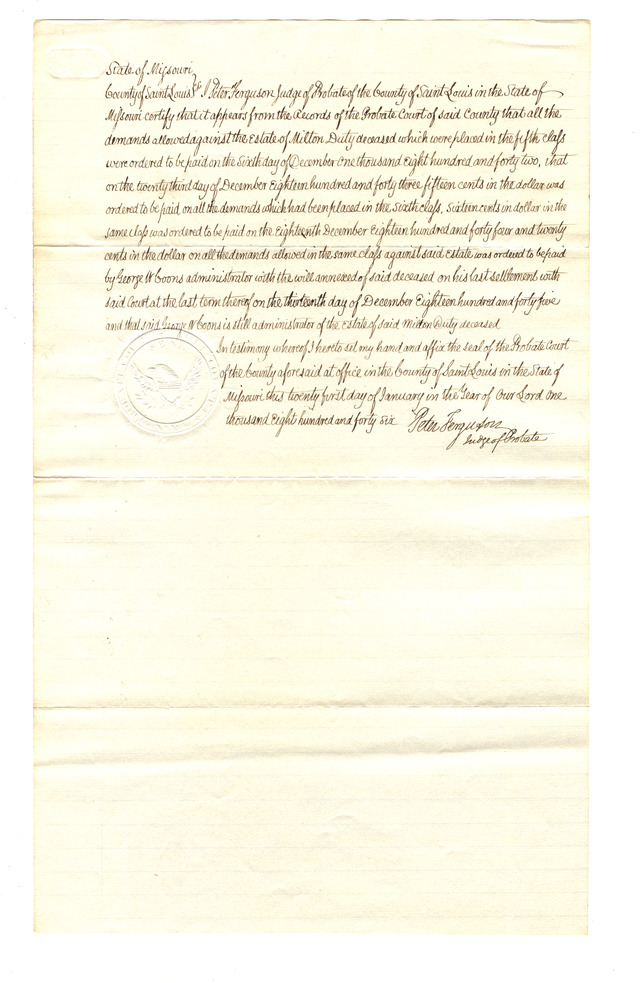 State of Missouri
County of Saint Louis I Peter Ferguson Judge of Probate of the County of Saint Louis in the State of
Missouri certify that it appears from the Records of the Probate Court of said County that all the
demands allowed against the Estate of Milton Duty deceased which were placed in the fifth class
were ordered to be paid on the Sixth day of December One thousand Eight hundred and forty two, that
on the twenty third day of December Eighteen hundred and forty three fifteen cents in the dollar was
ordered to be paid on all the demands which had been placed in the Sixth class, Sixteen cents in dollar in the
same class was ordered to be paid on the Eighteenth December Eighteen hundred and forty four and twenty
cents in the dollar on all the demands allowed in the same class against said Estate was ordered to be paid
by George W Coons administrator with the will annexed of said deceased on his last settlement with
said Court at the last term thereof on the thirteenth day of December Eighteen hundred and forty five
and that said George W Coons is still administrator of the Estate of said Milton Duty deceased
In testimony whereof I hereto set my hand and affix the seal of the Probate Court
of the County aforesaid at office in the County of Saint Louis in the State of
Missouri this twenty first day of January in the Year of Our Lord One
thousand Eight hundred and forty Six
Peter Ferguson
Judge of Probate